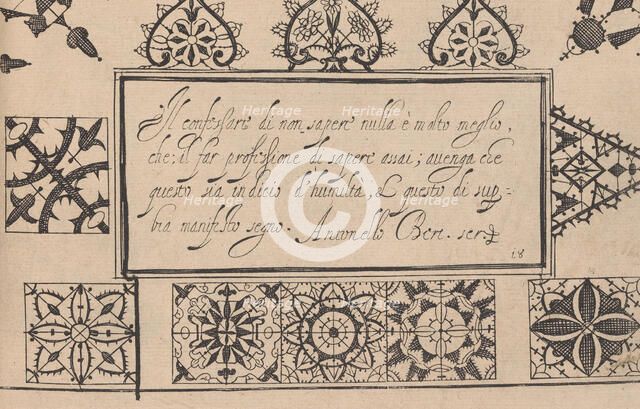 Il confessare di non sapere nulla è molto meglio,
che il far professione di sapere assai; auenga che
questo sia indicio d'humiltà, et questo di sup=
bia manifesto segno. Antonello Bert. scr.
18
Heritage Heritage
Heritage
Heritage Heritage